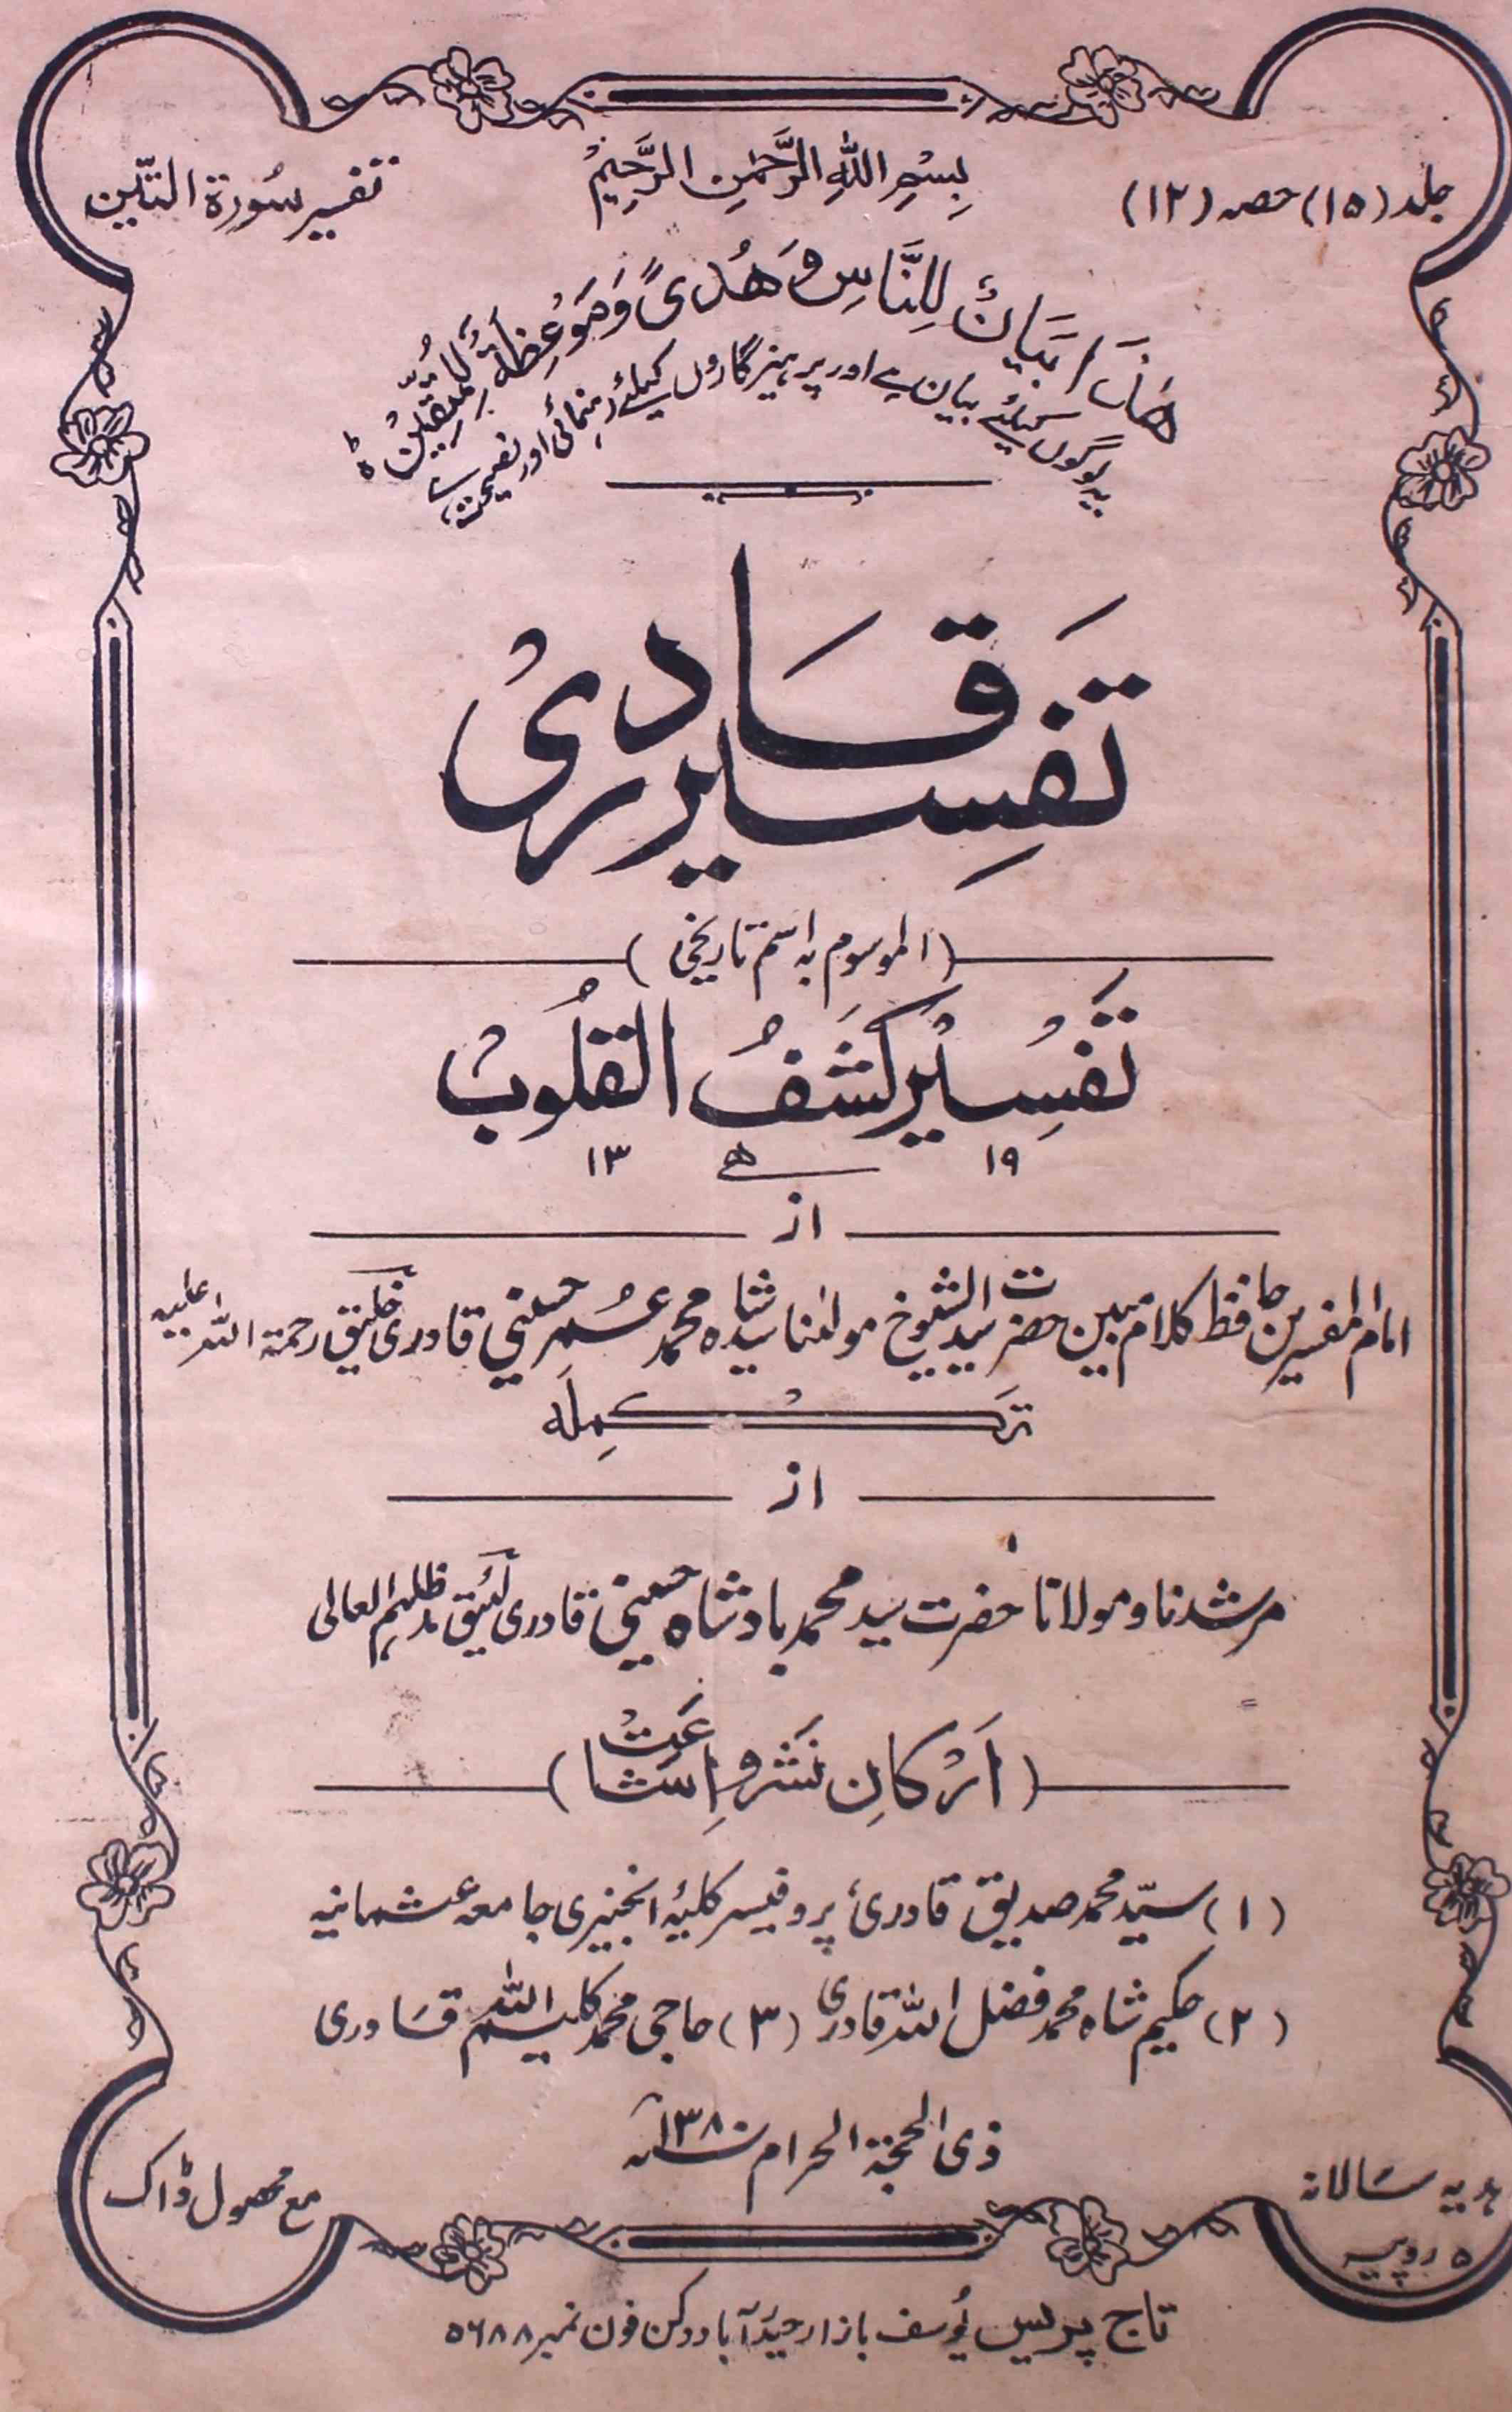 جلد (۱۵) حصہ (۱۲)
بِسْمِ اللہِ الرَّحْمٰنِ الرَّحِیْمِ
تفسیر سُورۃ التّین
ھٰذَا بَیَانٌ لِّلنَّاسِ وَھُدًی وَّمَوْعِظَۃٌ لِّلْمُتَّقِیْنَ ہ
یہ لوگوں کیلئے بیان ہے اور پرہیزگاروں کیلئے رہنمائی اور نصیحت ہے
تَفسِیر قَادرِیْ
(الموسوم بہ اسم تاریخی)
تَفْسِیْر کَشْفُ الْقُلُوبْ
۱۹ ھ ۱۳
از
امام المفسرین حافظ کلام مبین حضرت سید الشیوخ مولٰنا سید شاہ محمد عُمر حسینی قادری خلیقؔ رحمۃ اللہ علیہ
تَکْمِلَہ
از
مرشدنا و مولانا حضرت سید محمد بادشاہ حسینی قادری لئیقؔ مدظلہم العالی
(اَرْکانِ نَشْر و اِشَاعَتْ)
(۱) سیّد محمد صدیق قادری پروفیسر کلیۂ انجنیری جامعہ عثمانیہ
(۲) حکیم شاہ محمد فضل اللہ قادری (۳) حاجی محمد کلیم اللہ قادری
ذی الحجۃ الحرام ۱۳۸۰ھ
ہدیہ سالانہ
۵ روپیہ
مع محصول ڈاک
تاج پریس یُوسف بازار حیدرآباد دکن فون نمبر ۵۶۸۸